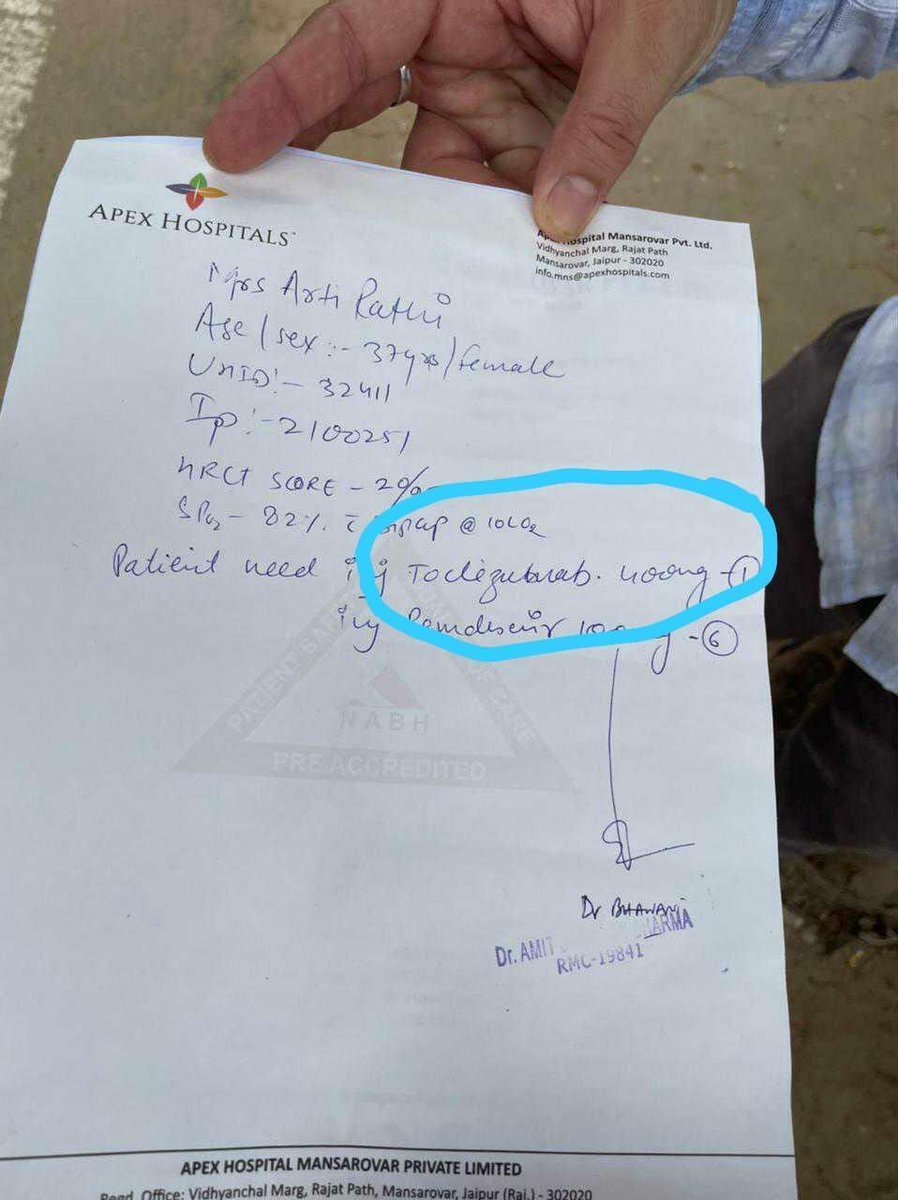 APEX HOSPITALS
Hospital Mansarovar Pvt. Ltd.
Vidhyanchal Marg, Rajat Path
Mansarovar, Jaipur - 302020
info.mns@apexhospitals.com
Mrs Arti Rathi
Age/sex :- 37yrs/female
UHID:- 32411
Ip:- 2100251
HRCT SCORE -
SPO2 - 82% @ 10LO2
Patient need inj Toclezubnab. 400mg - 1
inj Remdesivir 100mg - 6
NABH
PRE ACCREDITED
Dr BHAWANI
Dr. AMIT SHARMA
RMC-19841
APEX HOSPITAL MANSAROVAR PRIVATE LIMITED
Regd. Office: Vidhyanchal Marg, Rajat Path, Mansarovar, Jaipur (Raj.) - 302020